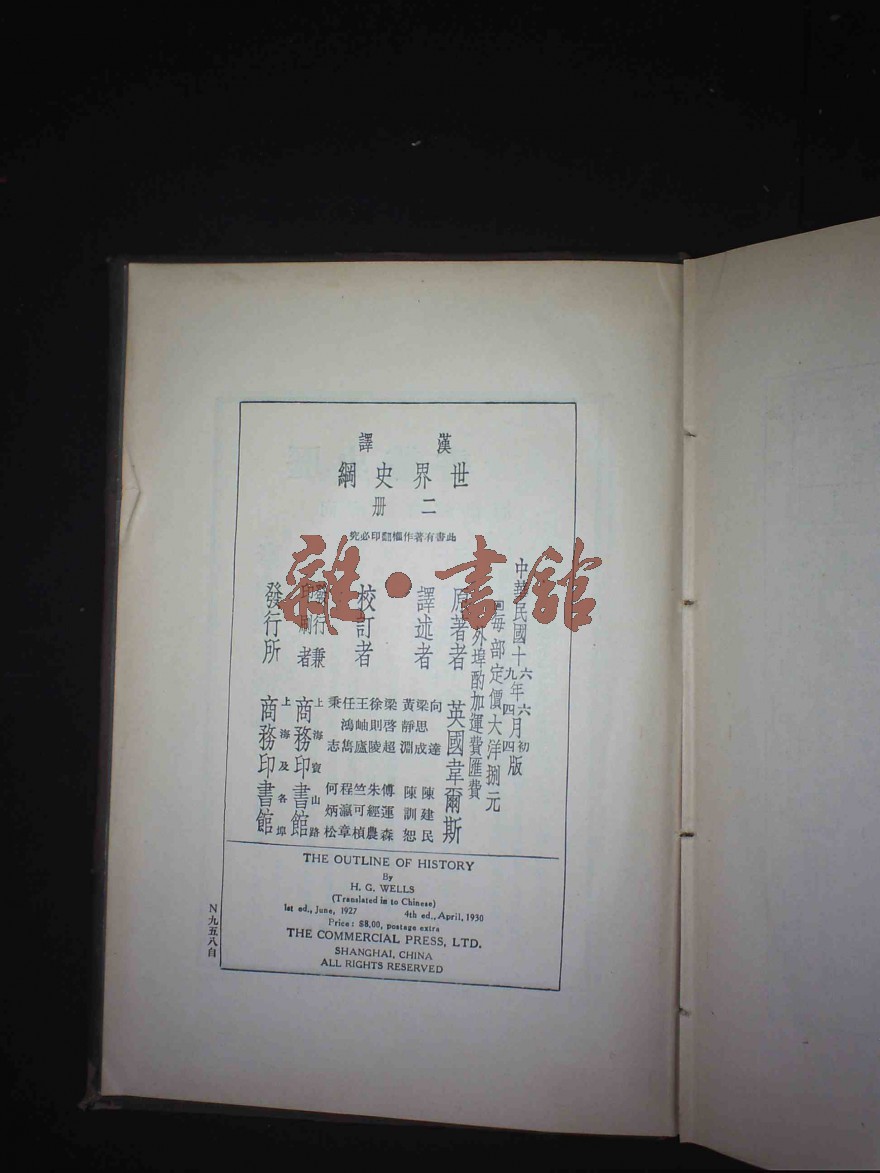 漢譯
世界史綱
二冊
此書有著作權翻印必究
中華民國十六年六月初版
九 四 四
每部定價大洋捌元
外埠酌加運費匯費
原著者 英國韋爾斯
譯述者
向達 陳建民
梁思成 陳訓恕
黃靜淵
校訂者
梁啓超 傅運森
徐則陵 朱經農
王岫廬 竺可楨
任鴻雋 程瀛章
秉志 何炳松
發行兼印刷者 上海寶山路 商務印書館
發行所 上海及各埠 商務印書館
THE OUTLINE OF HISTORY
By
H. G. WELLS
(Translated in to Chinese)
1st ed., June, 1927 4th ed., April, 1930
Price: $8.00, postage extra
THE COMMERCIAL PRESS, LTD.
SHANGHAI, CHINA
ALL RIGHTS RESERVED
N九五八自
雜·書館